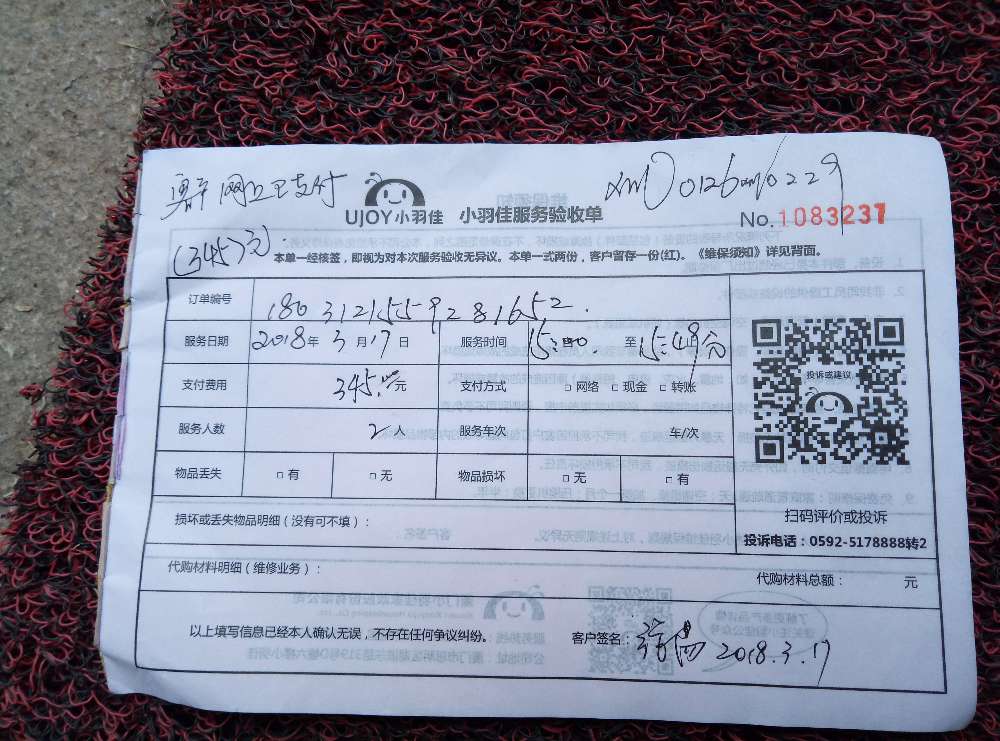 网上已支付
UJOY小羽佳 小羽佳服务验收单
No.1083237
(345元)
本单一经核签，即视为对本次服务验收无异议。本单一式两份，客户留存一份(红)。《维保须知》详见背面。
订单编号 1803121559281652
服务日期 2018年3月17日 服务时间 15:00 至 15:49分
支付费用 345.00元 支付方式 □网络 □现金 □转账
投诉或建议
服务人数 2人 服务车次 车/次
物品丢失 □有 □无 物品损坏 □无 □有
扫码评价或投诉
损坏或丢失物品明细（没有可不填）：
投诉电话：0592-5178888转2
代购材料明细（维修业务）： 代购材料总额： 元
以上填写信息已经本人确认无误，不存在任何争议纠纷。 客户签名： 2018.3.17